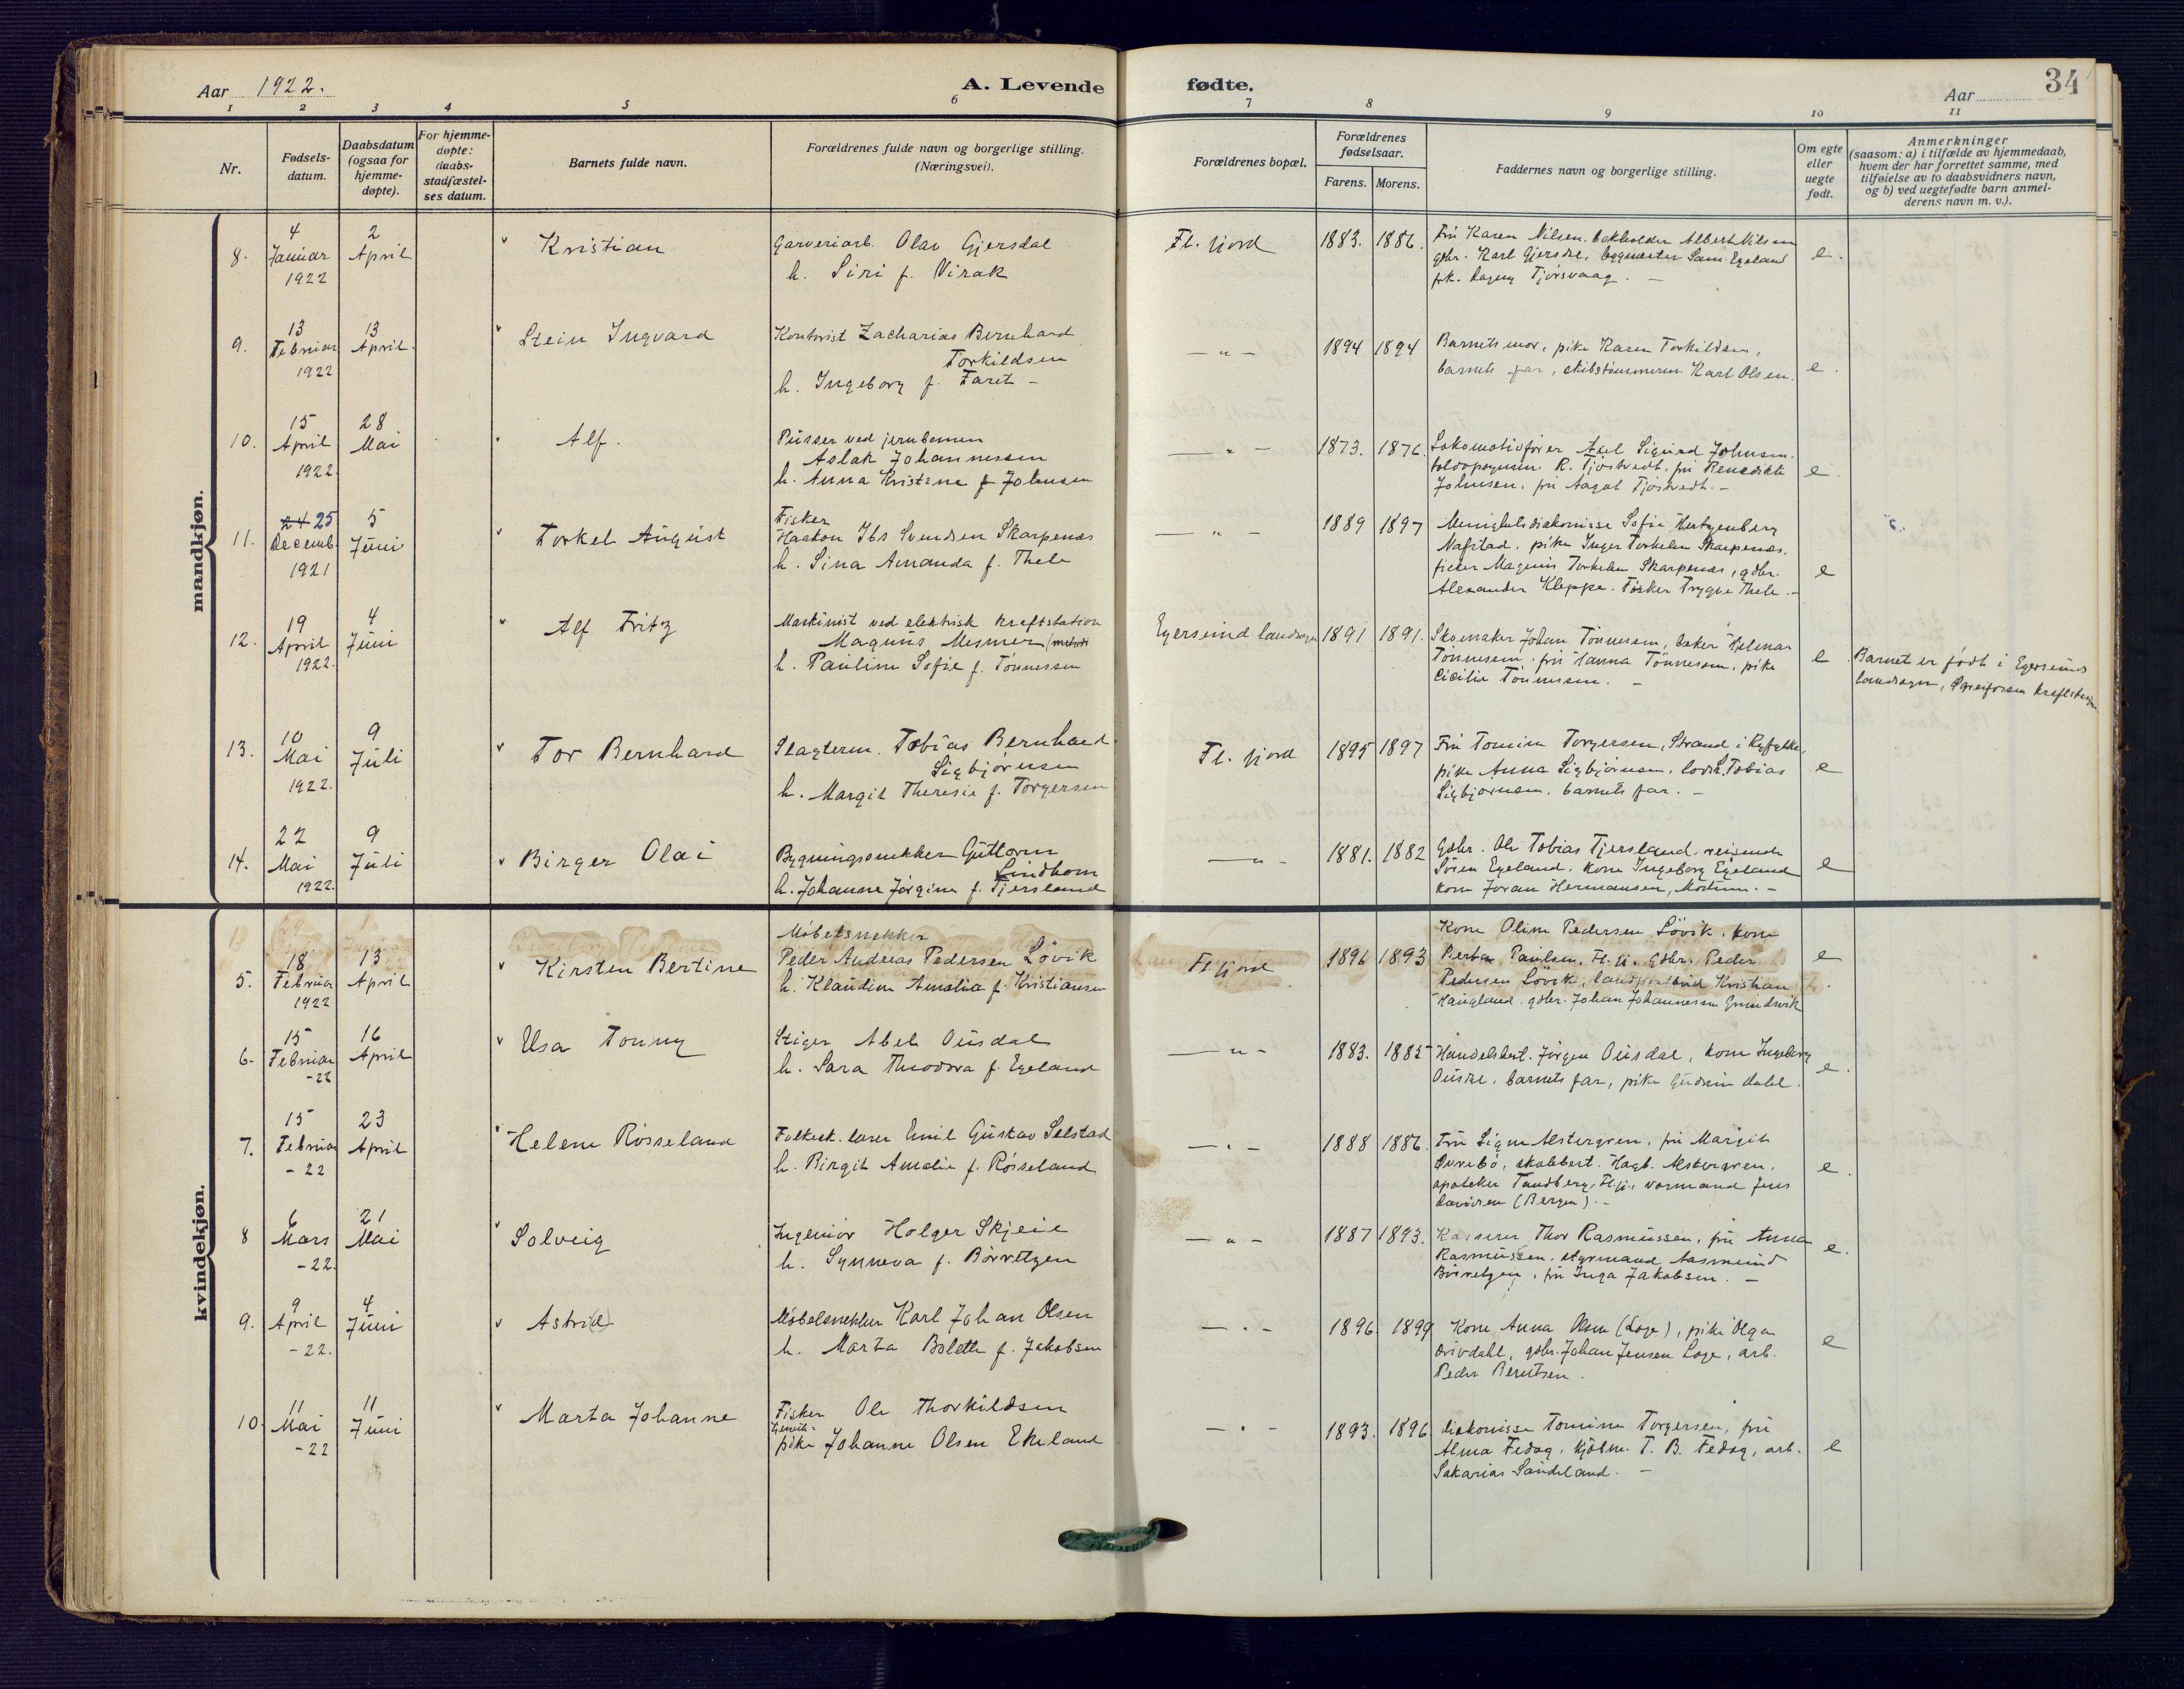 Aar 1922.
A. Levende fødte.
Aar
34
1 2 3 4 5 6 7 8 9 10 11
Nr.
Fødsels-
datum.
Daabsdatum
(ogsaa for
hjemme-
døpte).
For hjemme-
døpte:
daabs-
stadfæstel-
ses datum.
Barnets fulde navn.
Forældrenes fulde navn og borgerlige stilling.
(Næringsvei).
Forældrenes bopæl.
Forældrenes
fødselsaar.
Farens. Morens.
Faddernes navn og borgerlige stilling.
Om egte
eller
uegte
født.
Anmerkninger
(saasom: a) i tilfælde av hjemmedaab,
hvem der har forrettet samme, med
tilføielse av to daabsvidners navn,
og b) ved uegtefødte barn anmel-
derens navn m. v.).
mandkjøn.
8.
4
Januar
1922
2
April
Kristian
Garveriarb. Olav Gjersdal
h. Siri f. Virak
Fl. fjord
1883. 1886.
Fru Karen Nilsen, bokholder Albert Nilsen
gbr. Karl Gjersdal, byggmester Sam. Egeland
frk. Dagny Tjørsvaag. —
e.
9.
13
Februar
1922
13
April.
Stein Ingvard
Kontorist Zacharias Bernhard
Torkildsen
h. Ingeborg f. Faret —
— " —
1894 1894
Barnets mor, pike Karen Torkildsen,
barnets far, skibstømmerm. Karl Olsen.
e.
10.
15
April
1922.
28
Mai
Alf.
Pusser ved jernbanen
Aslak Johannessen
h. Anna Kristine f Johnsen
— " —
1873. 1876.
Lokomotivfører Axel Sigurd Johnsen.
toldopsynsm. R. Tjøstvedt, fru Benedikte
Johnsen, fru Aagot Tjøstvedt. —
e.
11.
24 25
Decemb.
1921
5
Juni
Torkel August
Fisker
Haakon Ibs Svendsen Skarpenæs
h. Sina Amanda f. Thele
— " —
1889 1897
Menighetsdiakonisse Sofie Hertzenberg
Nafstad, pike Inger Torkelsen Skarpenæs,
fisker Magnus Torkelsen Skarpenæs, gdbr.
Alexander Kleppe. Fisker Trygve Thele. —
e
12.
19
April
1922.
4
Juni
Alf Fritz
Maskinist ved elektrisk kraftstation
Magnus Mesmer
h. Pauline Sofie f. Tønnessen
Egersund landsogn
1891 1891.
Skomaker Johan Tønnessen, Hjelmar
Tønnessen, fru Hanna Tønnessen, pike
Cicilie Tønnessen. —
e
Barnet er født i Egersund
landsogn,
13.
10
Mai
1922.
9
Juli
Tor Bernhard
Slagterm. Tobias Bernhard
Sigbjørnsen
h. Margit Theresie f. Torgersen
Fl. fjord
1895 1897
Fru Tomine Torgersen, Strand i Ryfylke,
pike Anna Sigbjørnsen, lods Tobias
Sigbjørnsen, barnets far. —
e
14.
22
Mai
1922.
9
Juli
Birger Olai
Bygningssnekker Guttorm
Lindhom
h. Johanne Jørgine f. Tjersland
— " —
1881. 1882
Gdbr. Ole Tobias Tjersland, reisende
Søren Egeland, kone Ingeborg Egeland
kone Joran Hermansen, —
e
kvindekjøn.
5.
18
Februar
1922
13
April
Kirsten Bertine
Møbelsnekker
Peder Andreas Pedersen Løvik
h. Klaudine Amalia f. Kristiansen
Fl. fjord
1896 1893
Kone Oline Pedersen Løvik, kone
Berta Paulsen, Fl.fj. gdbr. Peder
Pedersen Løvik, Kristian
Haugland, gdbr. Johan Johannessen Grundvik
e
6.
15
Februar
-22
16
April
Elsa Tonny
Stiger Abel Ousdal
h. Sara Theodora f. Egeland
— " —
1883. 1885
Handelsbest. Jørgen Ousdal, kone Ingeborg
Ousdal, barnets far, pike Gudrun Dahl.
e.
7.
15
Februar
-22
23
April
Helene Røsseland
Folkesk. lærer Emil Gustav Selstad
h. Birgit Amalie f. Røsseland
— " —
1888 1886.
Fru Signe Alstergren, fru Margit
Øvrebø, skolebest. Hagb. Alstergren,
apoteker Tandberg, Fl.fj., vormand Jens
Davidsen (Bergen). —
e.
8
6
Mars
-22.
21
Mai
Solveig
Ingeniør Holger Skjeie
h. Synneva f. Børretzen
— " —
1887 1893.
Kasserer Thor Rasmussen, fru Anna
Rasmussen, styrmand Aasmund
Børretzen, fru Inga Jakobsen. —
e.
9.
9
April
-22.
4
Juni
Astri(d)
Møbelsnekker Karl Johan Olsen
h. Marta Bolette f. Jakobsen
— " —
1896 1899
Kone Anna Olsen (Loge), pike Olga
Drivdahl, gdbr. Johan Jensen Loge, arb.
Peder Berntsen.
e
10.
11
Mai
-22
11
Juni
Marta Johanne
Fisker Ole Thorkildsen
pike Johanne Olsen Ekeland
— " —
1893. 1896
Diakonisse Tomine Torgersen, fru
Alma Fedog, kjøbm. T. B. Fedog, arb.
Sakarias Sandeland. —
e